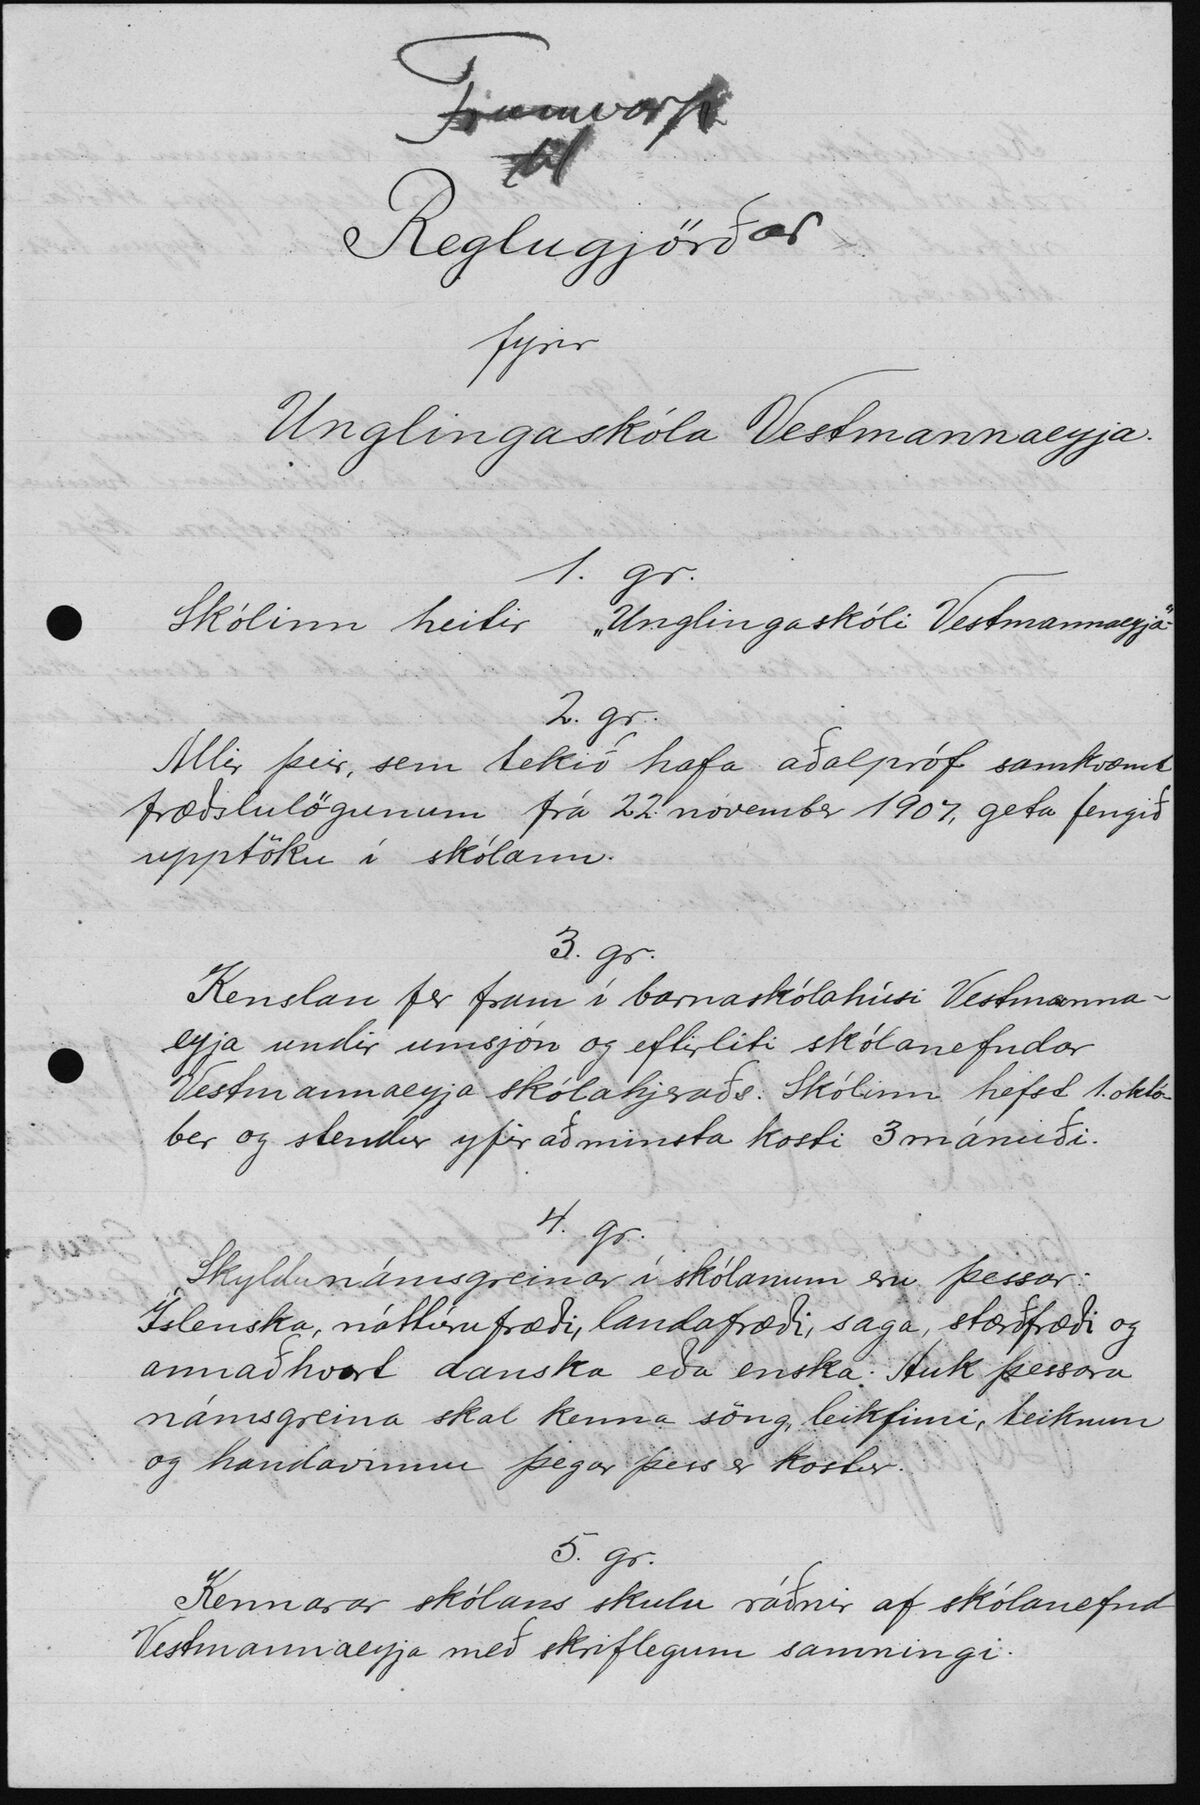 Frumvarp
til
Reglugjörðar
fyrir
Unglingaskóla Vestmannaeyja.
1. gr.
Skólinn heitir „Unglingaskóli Vestmannaeyja"
2. gr.
Allir þeir, sem tekið hafa aðalpróf samkvæmt
fræðslulögunum frá 22. nóvember 1907, geta fengið
upptöku í skólann.
3. gr.
Kenslan fer fram í barnaskólahúsi Vestmanna-
eyja undir umsjón og eftirliti skólanefndar
Vestmannaeyja skólahjeraðs. Skólinn hefst 1. októ-
ber og stendur yfir að minsta kosti 3 mánuði.
4. gr.
Skyldunámsgreinar í skólanum eru þessar:
Íslenska, náttúrufræði, landafræði, saga, stærðfræði og
annaðhvort danska eða enska. Auk þessara
námsgreina skal kenna söng, leikfimi, teiknun
og handavinnu þegar þess er kostur.
5. gr.
Kennarar skólans skulu ráðnir af skólanefnd
Vestmannaeyja með skriflegum samningi.